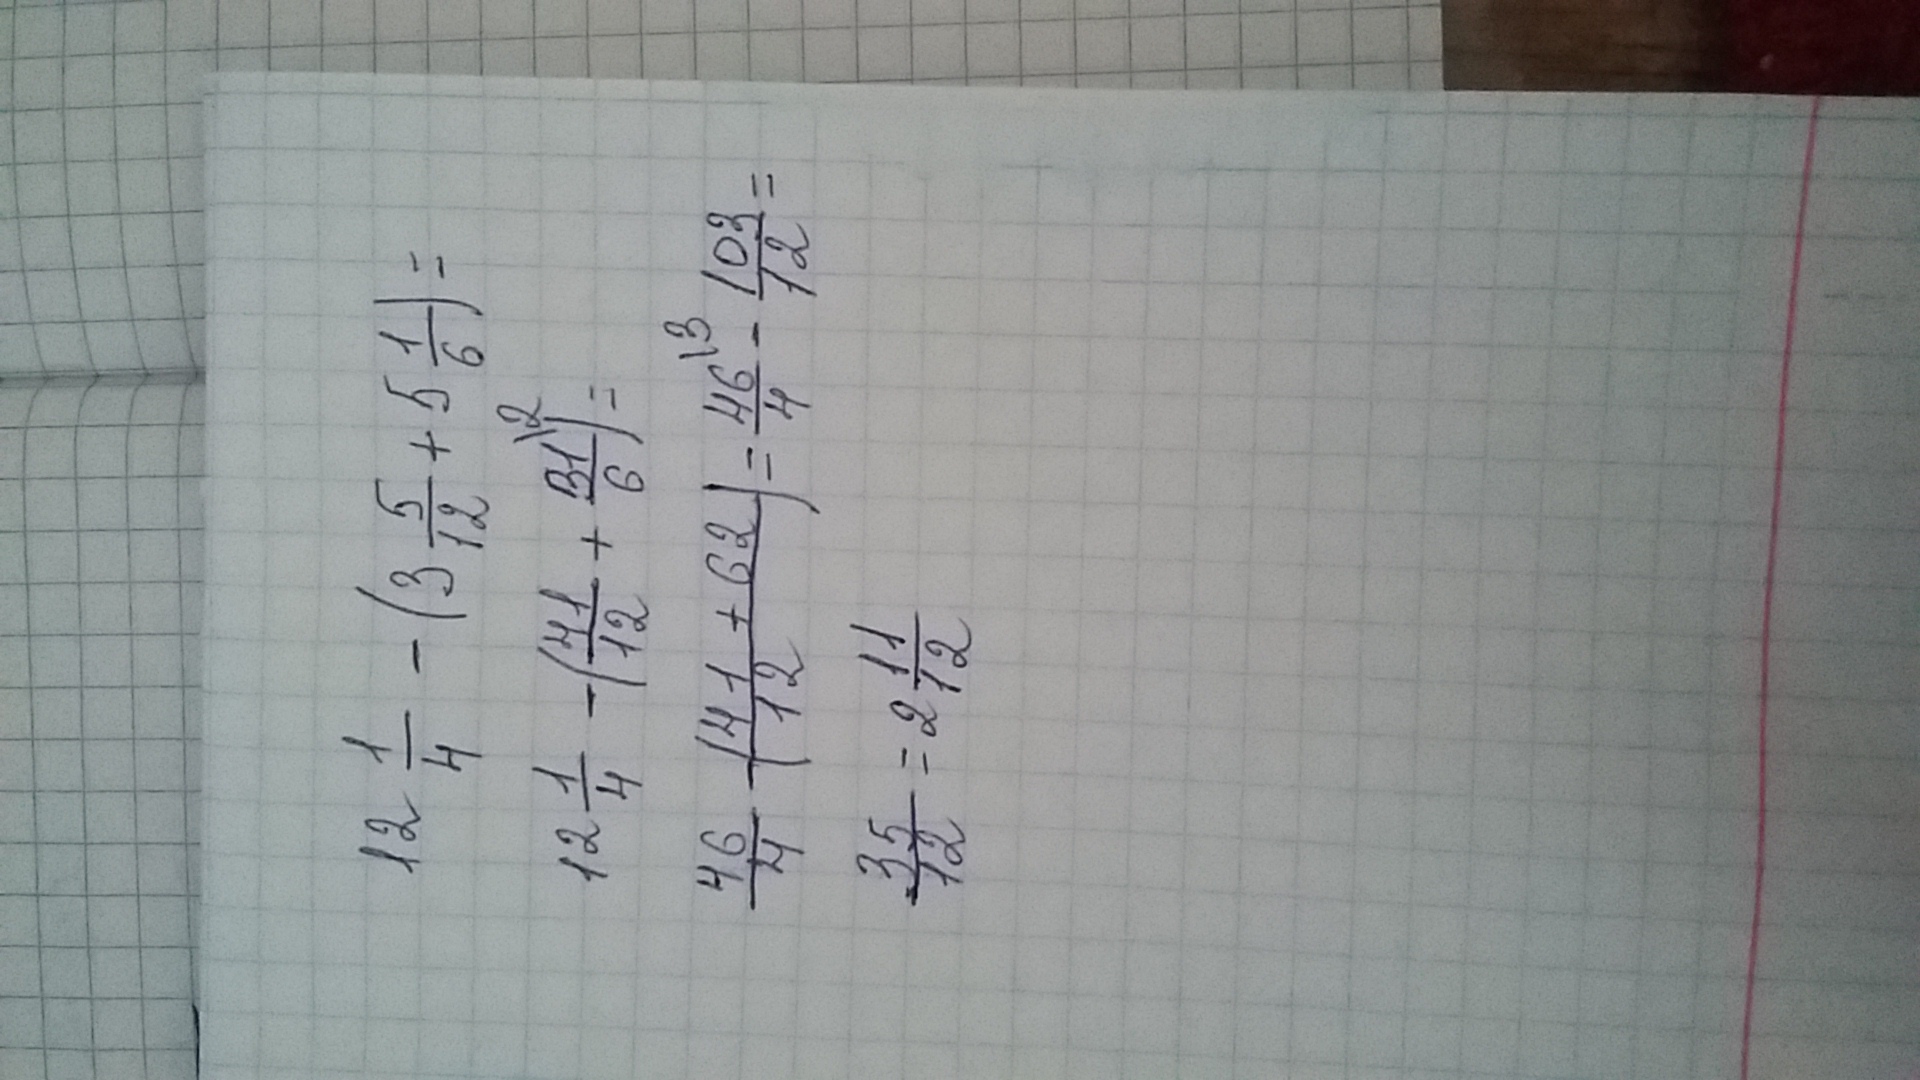 12 1/4 - (3 5/12 + 5 1/6) =
12 1/4 - (41/12 + 31/6 \2) =
46/4 - (41 + 62/12) = 46/4 \3 - 103/12 =
35/12 = 2 11/12